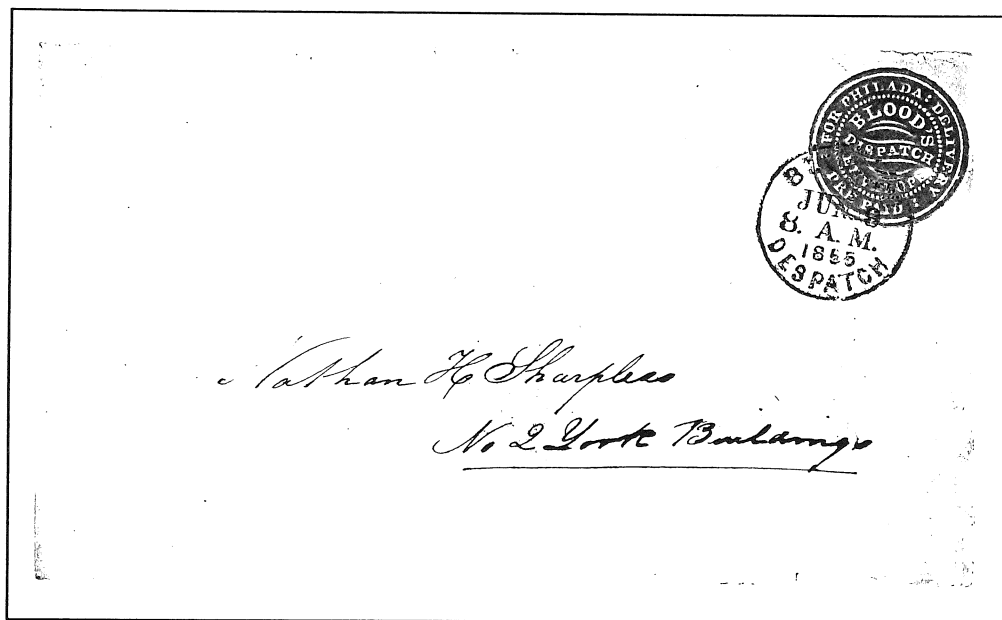 FOR PHILADA: DELIVERY
BLOOD'S
DISPATCH
ENVELOPE
PRE PAID
JUN. 8
8. A. M.
1855
DESPATCH
Nathan H Sharpless
No 2 York Buildings